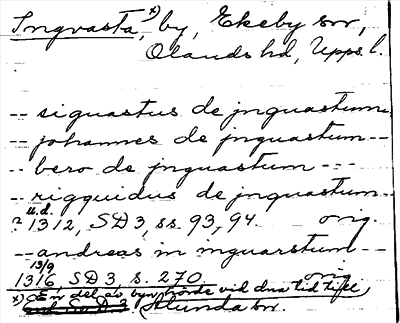 Ingvasta, x) by, Ekeby sn,
Olands hd, Upps. l.
-- siguastus de jnguastum
-- johannes de jnguastum --
-- bero de jnguastum ---
-- rigguidus de jnguastum --
? u.d. 1312, SD 3, ss. 93, 94. orig.
-- andreas in inguarstum --
13/9
1316, SD 3, s. 270. orig.
x) En del av byn hörde vid dna tid till
Alunda sn.